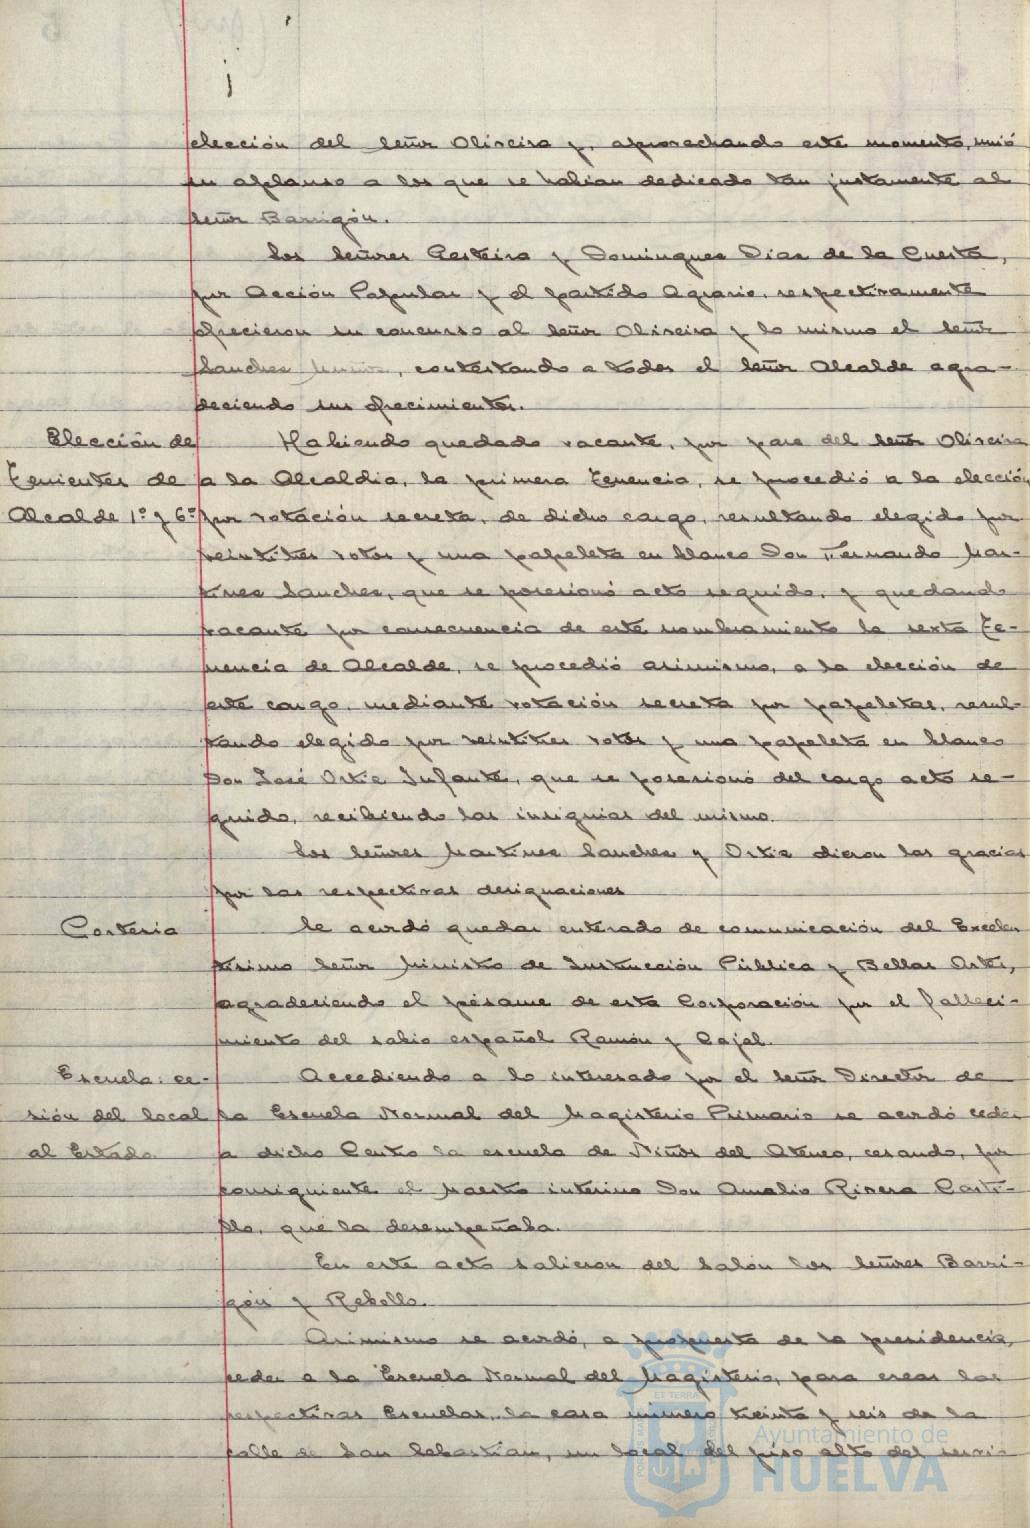 elección del señor Oliveira y, aprovechando este momento, unió
su aplauso a los que se habian dedicado tan justamente al
señor Barrigón.
Los señores Cerdeira y Domingues Dias de la Cuesta,
por Acción Popular y el partido Agrario, respectivamente
ofrecieron su concurso al señor Oliveira y lo mismo el señor
Sanches, contestando a todos el señor Alcalde agra-
deciendo sus ofrecimientos.
Elección de
Tenientes de
Alcalde 1º y 6º
Habiendo quedado vacante, por pase del señor Oliveira
a la Alcaldia, la primera Tenencia, se procedió a la elección
por votación secreta, de dicho cargo, resultando elegido por
veintitres votos y una papeleta en blanco Don Fernando Mar-
tines Sanches, que se posesionó acto seguido, y quedando
vacante por consecuencia de este nombramiento la sexta Te-
nencia de Alcalde, se procedió asimismo, a la elección de
este cargo, mediante votación secreta por papeletas, resul-
tando elegido por veintitres votos y una papeleta en blanco
Don José Ortiz Infante, que se posesionó del cargo acto se-
guido, recibiendo las insignias del mismo.
Los señores Martines Sanches y Ortiz dieron las gracias
por las respectivas designaciones
Corteria
Se acordó quedar enterado de comunicación del Excelen
tisimo Señor Ministro de Instrucción Pública y Bellas Artes,
agradeciendo el pésame de esta Corporación por el falleci-
miento del sabio español Ramón y Cajal.
Escuela: ce-
sión del local
al Estado.
Accediendo a lo interesado por el señor Director de
la Escuela Normal del Magisterio Primario se acordó ceder
a dicho Centro la escuela de Niños del Ateneo, cesando, por
consiguiente el Maestro interino Don Amalio Rivera Casti-
llo, que la desempeñaba.
En este acto salieron del salón los señores Barri-
gón y Rebollo.
Asimismo se acordó, a propuesta de la presidencia,
ceder a la Escuela Normal del Magisterio, para crear las
respectivas Escuelas, la casa número treinta y seis de la
calle de San Sebastián, un local del piso alto del
Ayuntamiento de
HUELVA